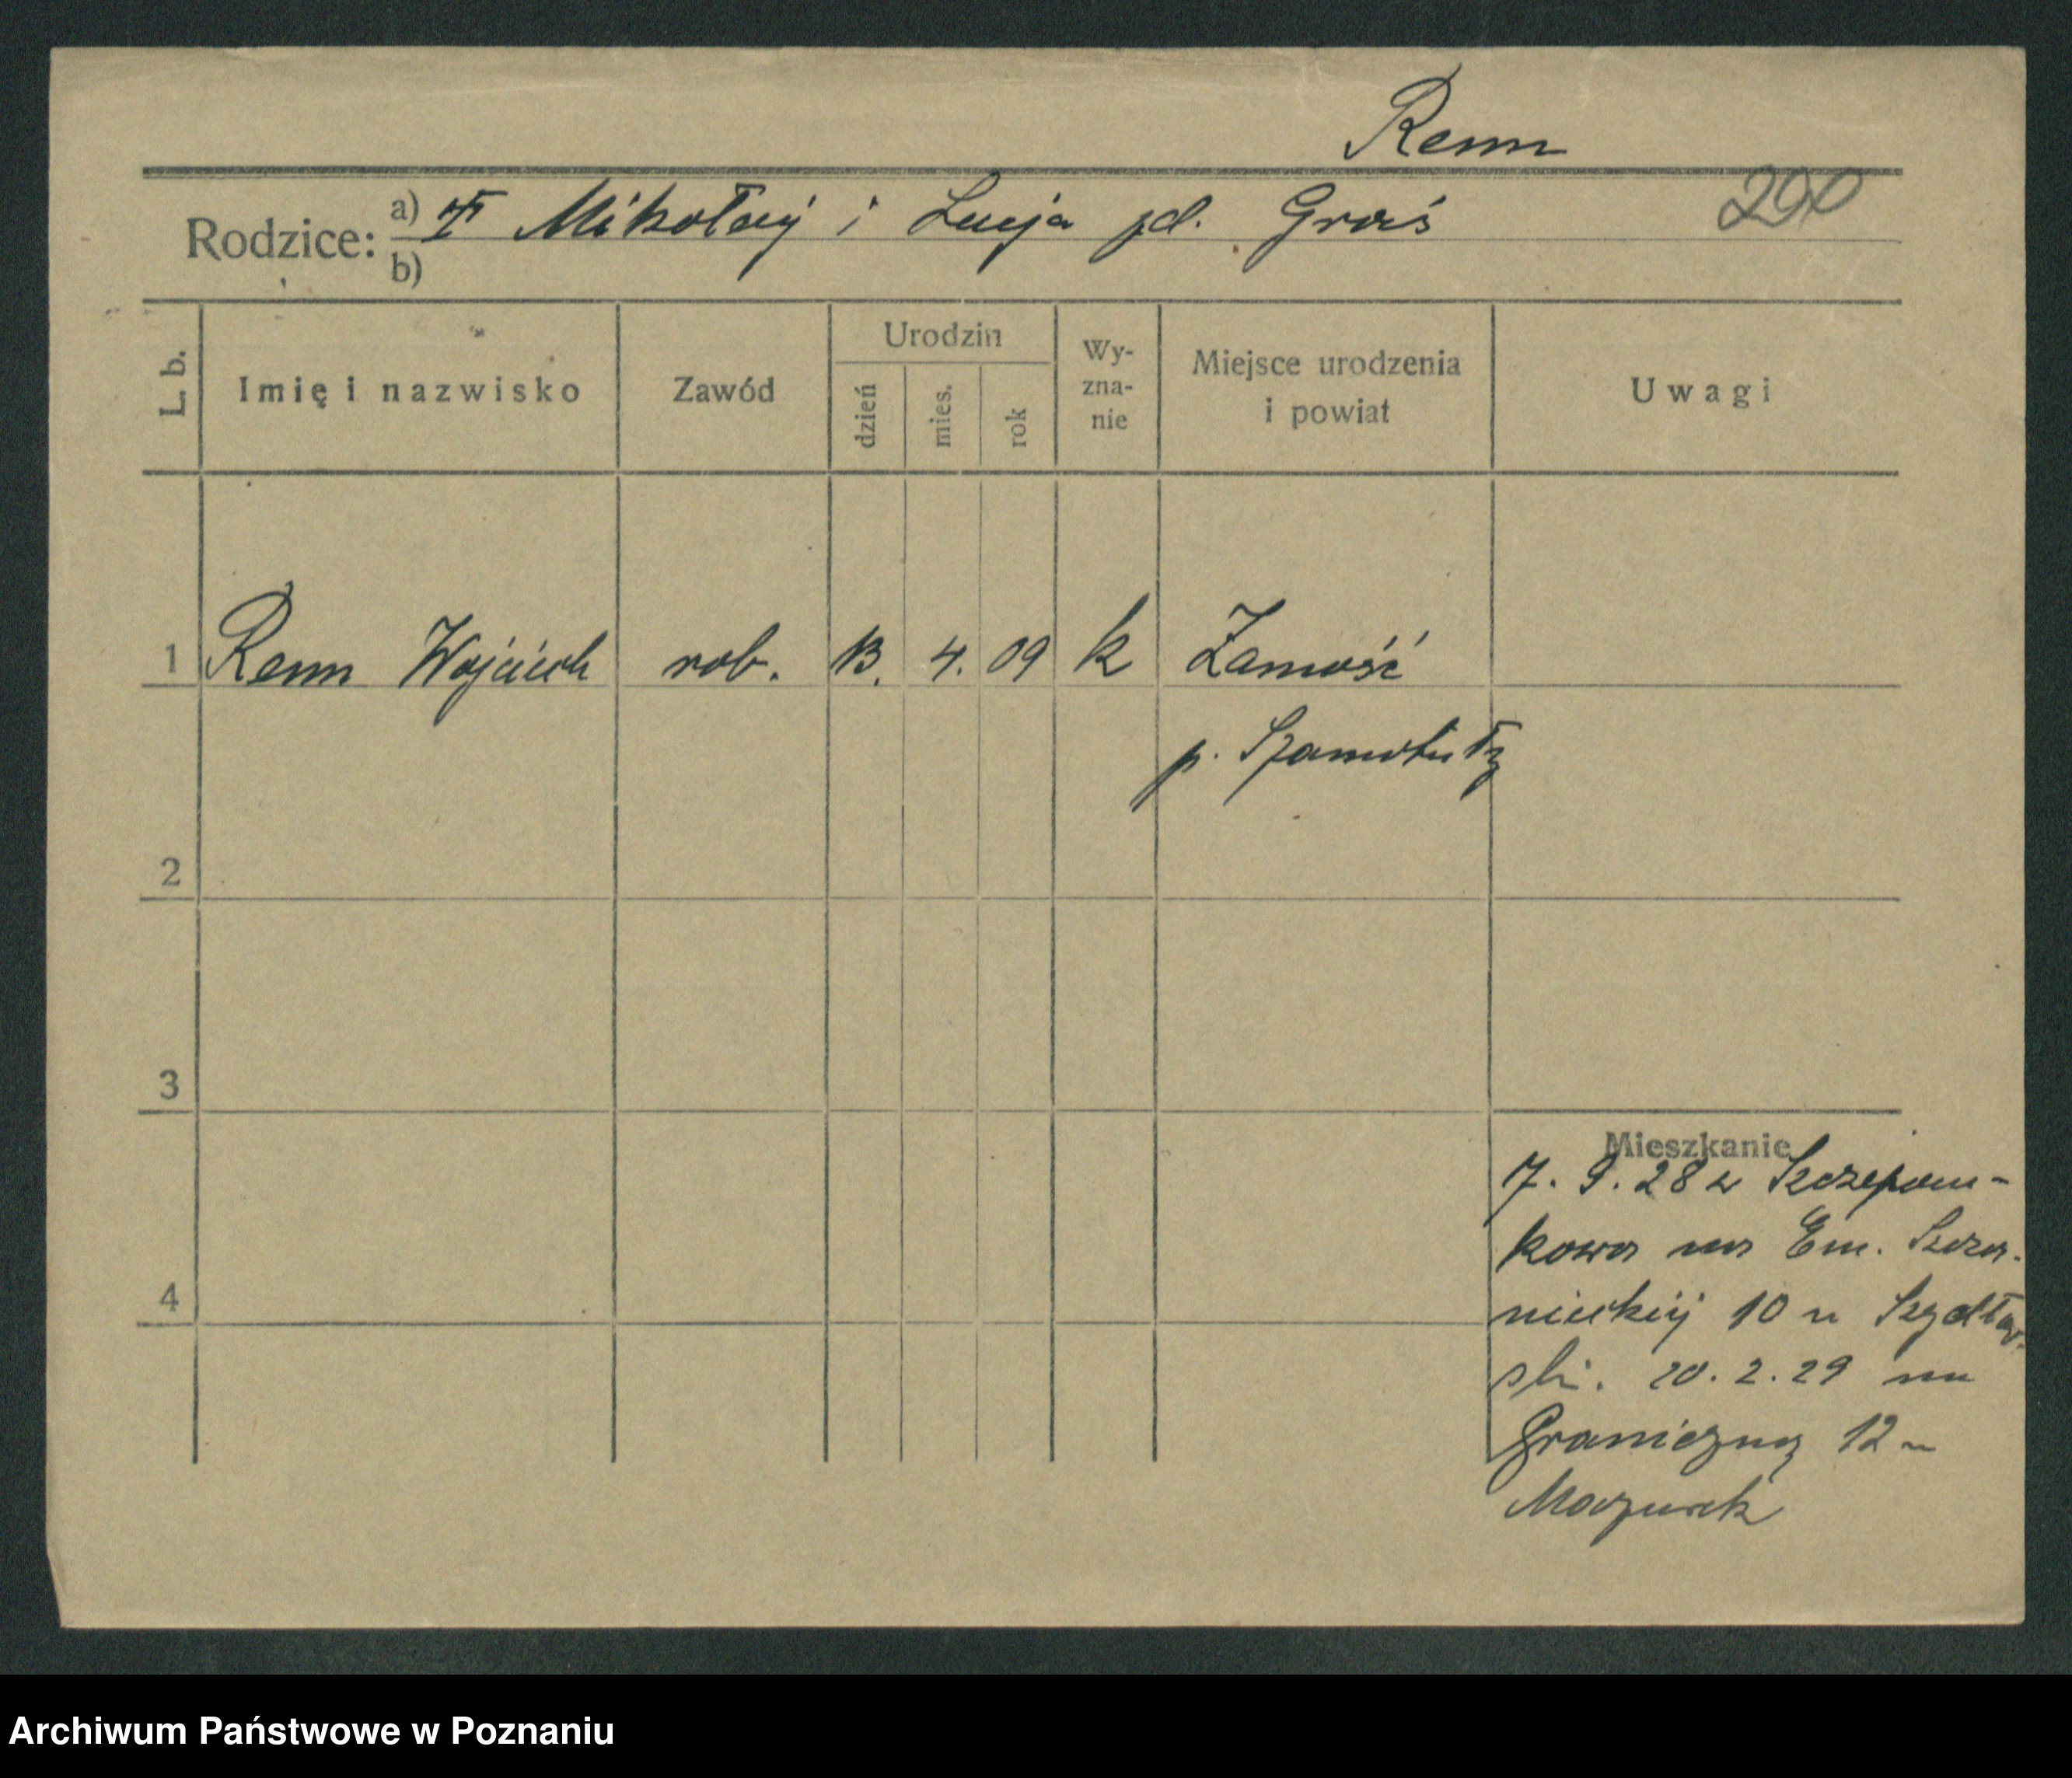 Renn
290
Rodzice: a) Mikołaj i Łucja zd. Graś
b)
L. b.
Imię i nazwisko
Zawód
Urodzin
dzień
mies.
rok
Wy-
zna-
nie
Miejsce urodzenia
i powiat
Uwagi
1 Renn Wojciech rob. 13. 4. 09 k Zamość
p. Szamotuły
2
3
4
Mieszkanie
7. 9. 28 z Szczepan-
kowa na Em. Szcza-
nieckiej 10 u Szydłow-
ski. 20. 2. 29 na
Graniczną 12 u
Mazurek
Archiwum Państwowe w Poznaniu